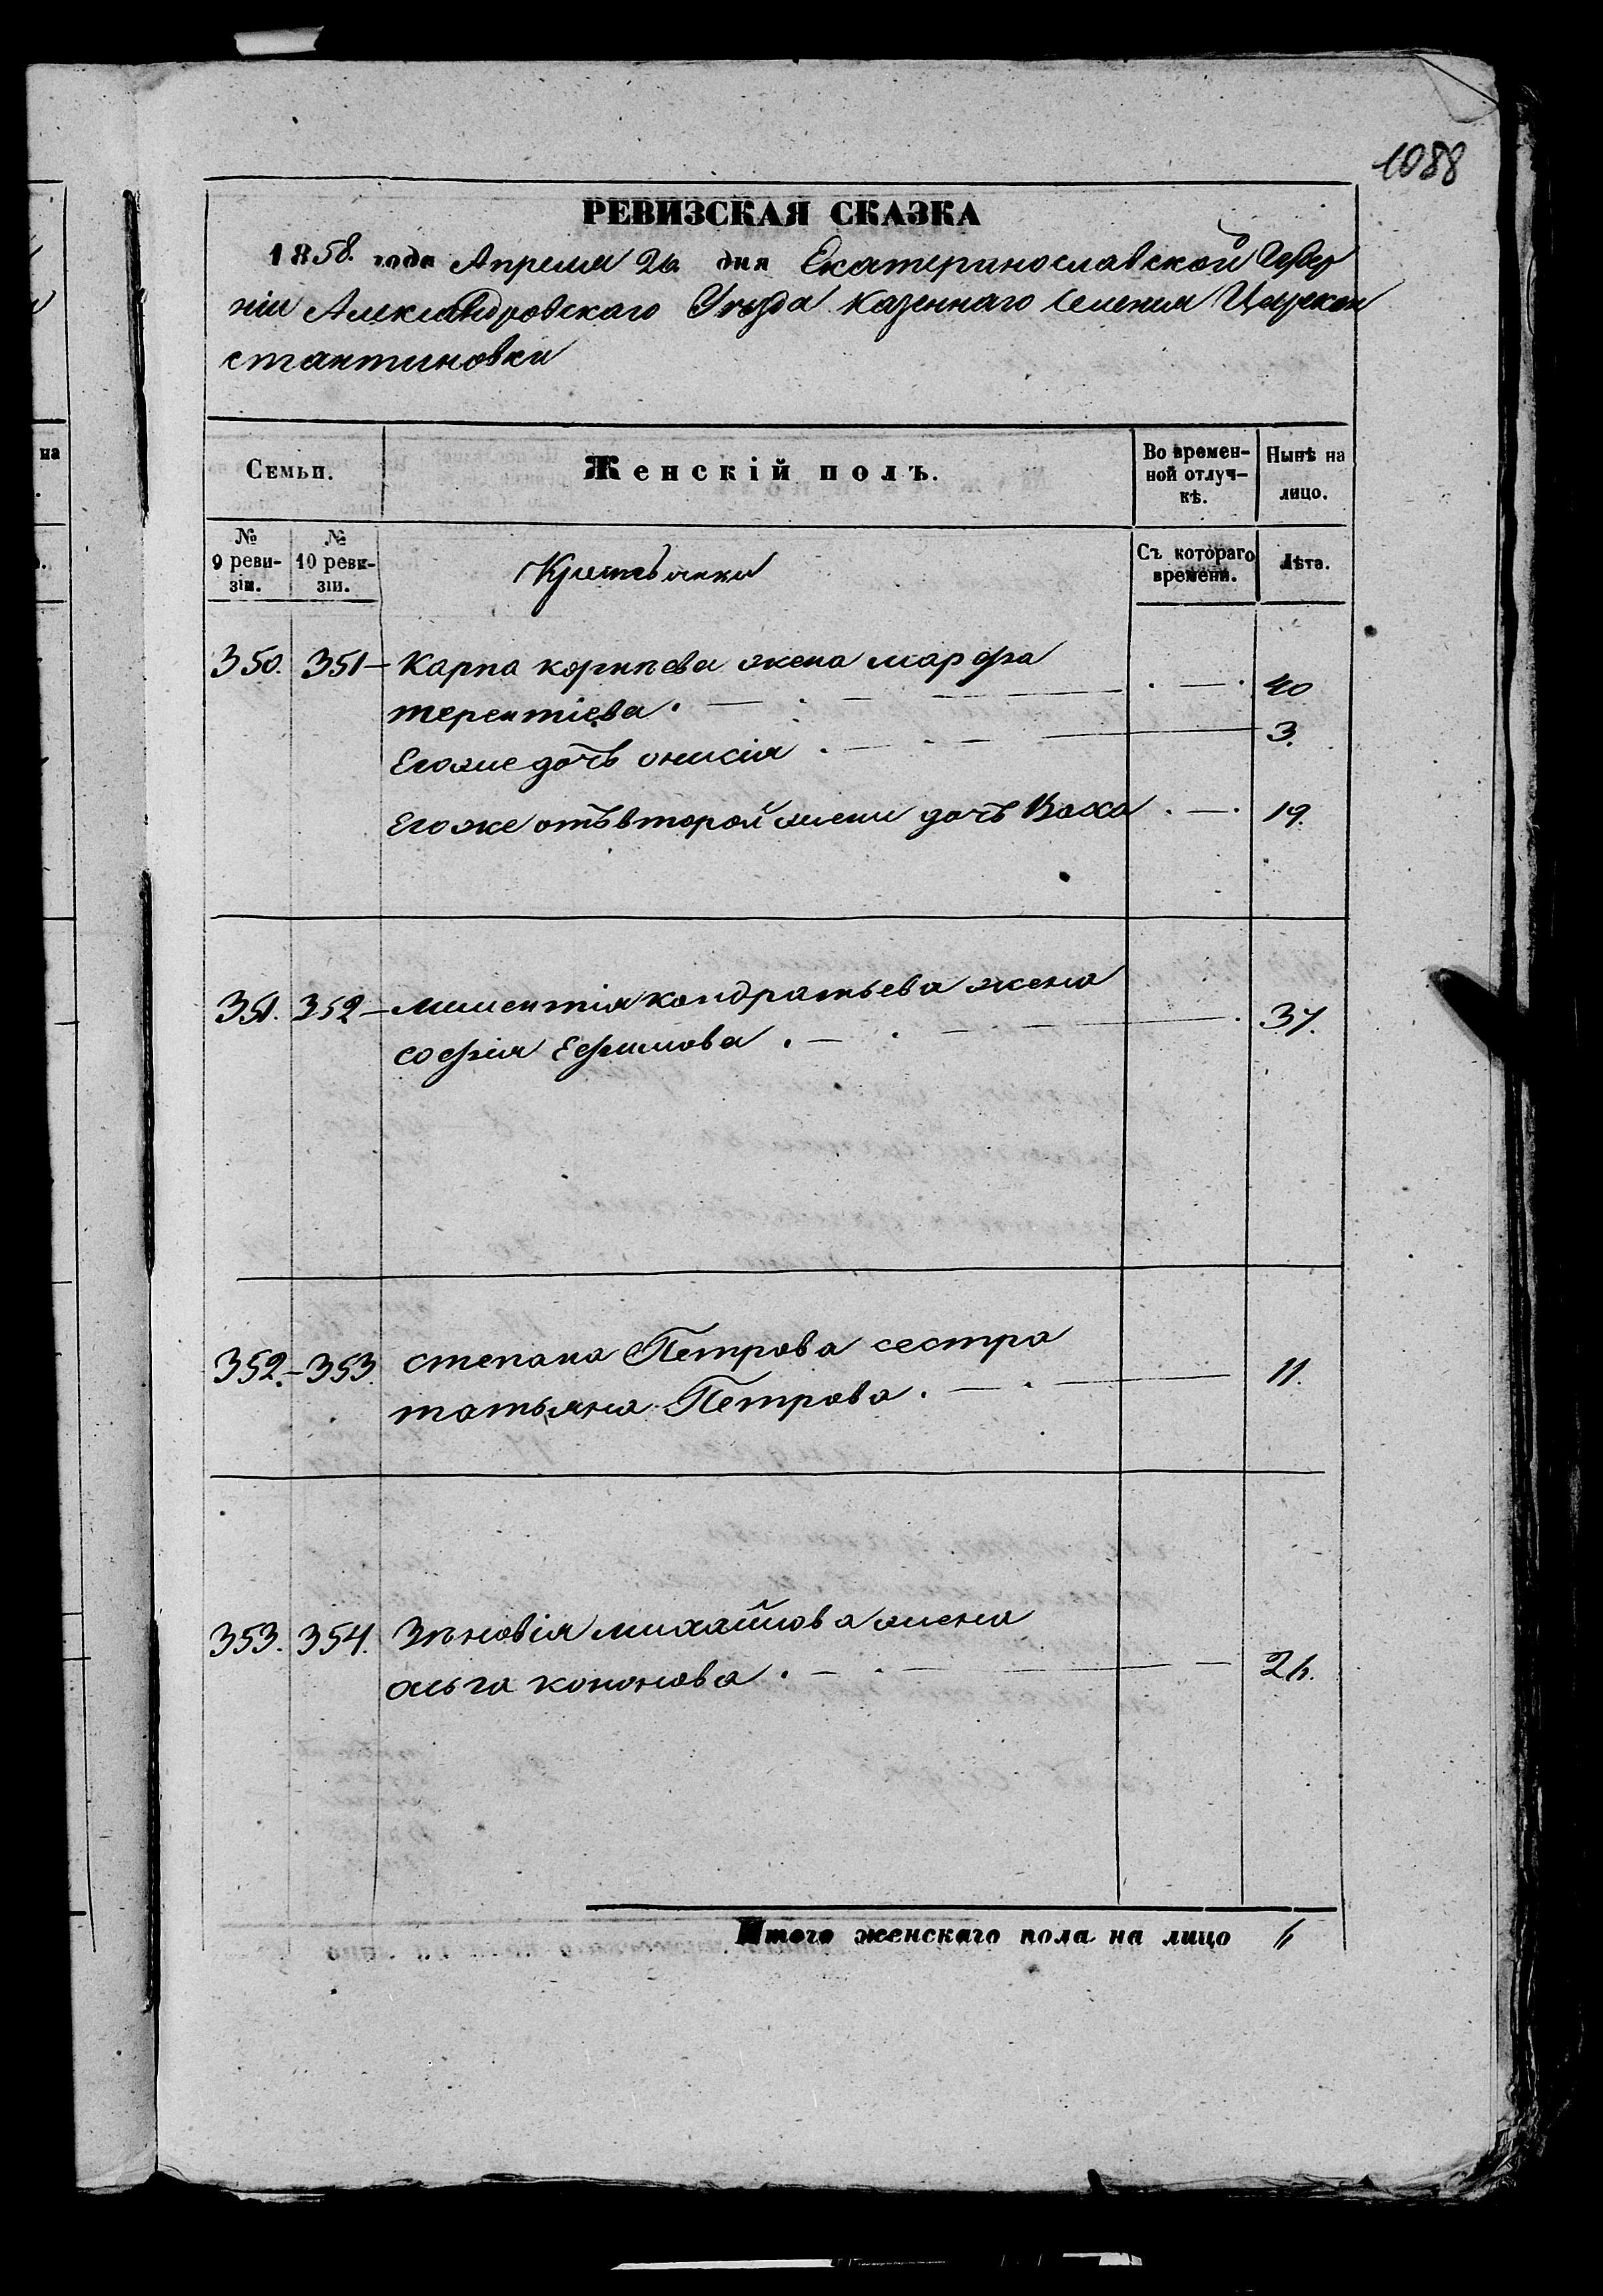 1088
РЕВИЗСКАЯ СКАЗКА
1858. года Апреля 26. дня Екатеринославской Губер
ніи Александровскаго Уезда казеннаго селения Царекон
стантиновки
Семьи. Женскій полъ. Во времен- Нынѣ на
ной отлуч- лицо.
кѣ.
№ № Съ котораго Лѣта.
9 реви- 10 реви- Крестьянки времени.
зіи. зіи.
350. 351 - Карпа корнѣева жена марфа
терентіева. 40
Егоже дочь онисія 3.
Егоже отъ второй жени дочь 19.
351. 352 - кондратьева жена
софія Ефимова. 37.
352. - 353. степана Петрова сестра
татьяна Петрова. 11.
353. 354. Зѣновія михайлова жена
ольга кононова. 26.
Итого женскаго пола на лицо 6
на